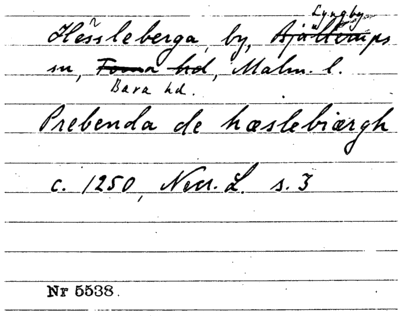 Lyngby
Hessleberga, by, Bjällerups
sn, Torna hd, Malm. l.
Bara hd.
Prebenda de hæslebiærgh
c. 1250, Necr. L. s. 3
Nr 5538.